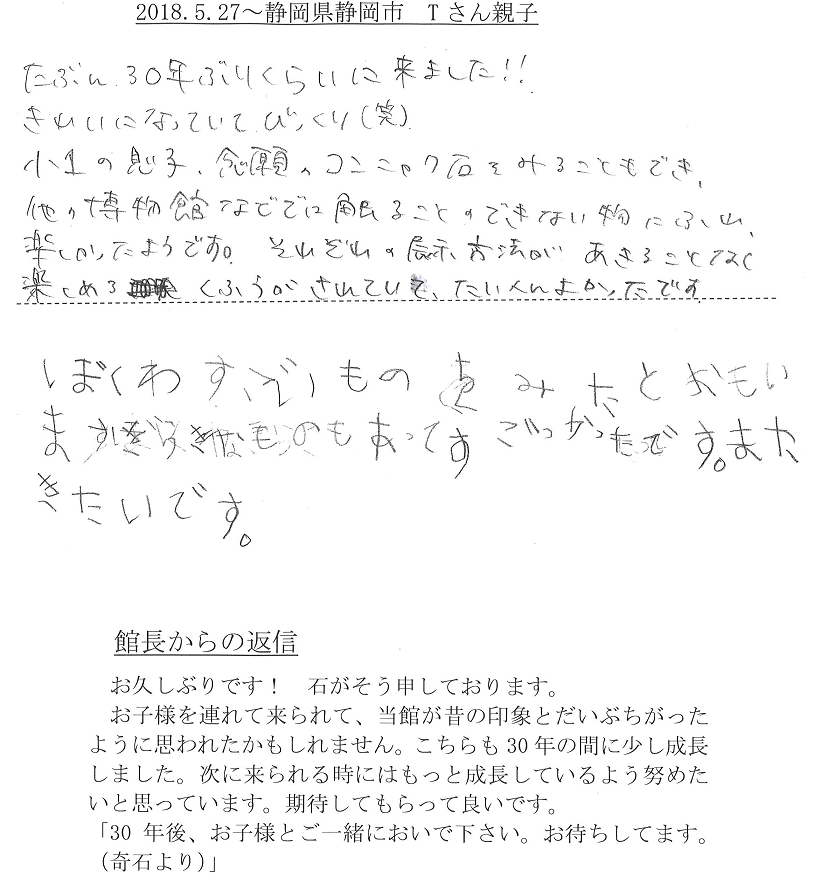 2018.5.27～静岡県静岡市　Tさん親子
たぶん、30年ぶりくらいに来ました!!
きれいになっていてびっくり(笑)
小1の息子、念願のコンニャク石をみることもでき、
他の博物館などでは触ることのできない物にふれ、
楽しかったようです。それぞれの展示方法が あきることなく
楽しめる くふうがされていて、たいへんよかったです
ぼくわすごいものをみたとおもい
ます なものもあってすごっかったです。また
きたいです。
館長からの返信
お久しぶりです！　石がそう申しております。
お子様を連れて来られて、当館が昔の印象とだいぶちがった
ように思われたかもしれません。こちらも30年の間に少し成長
しました。次に来られる時にはもっと成長しているよう努めた
いと思っています。期待してもらって良いです。
「30年後、お子様とご一緒においで下さい。お待ちしてます。
(奇石より)」